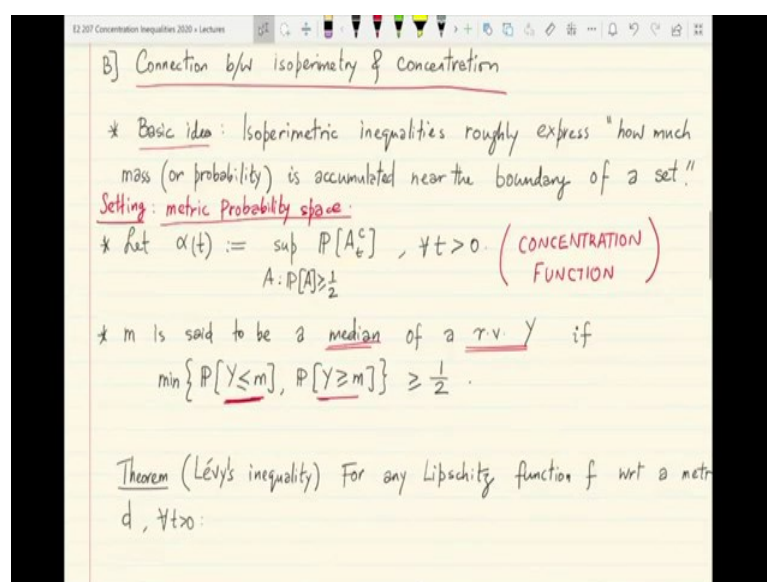 E2 207 Concentration Inequalities 2020 » Lectures
B] Connection b/w isoperimetry & concentration
* Basic idea: Isoperimetric inequalities roughly express "how much
mass (or probability) is accumulated near the boundary of a set."
Setting: metric Probability space.
* Let α(t) := sup P[A_t^c] , ∀t>0. (CONCENTRATION
A: P[A]≥1/2 FUNCTION)
* m is said to be a median of a r.v. Y if
min{P[Y≤m], P[Y≥m]} ≥ 1/2 .
Theorem (Lévy's inequality) For any Lipschitz function f wrt a metr
d, ∀t>0: